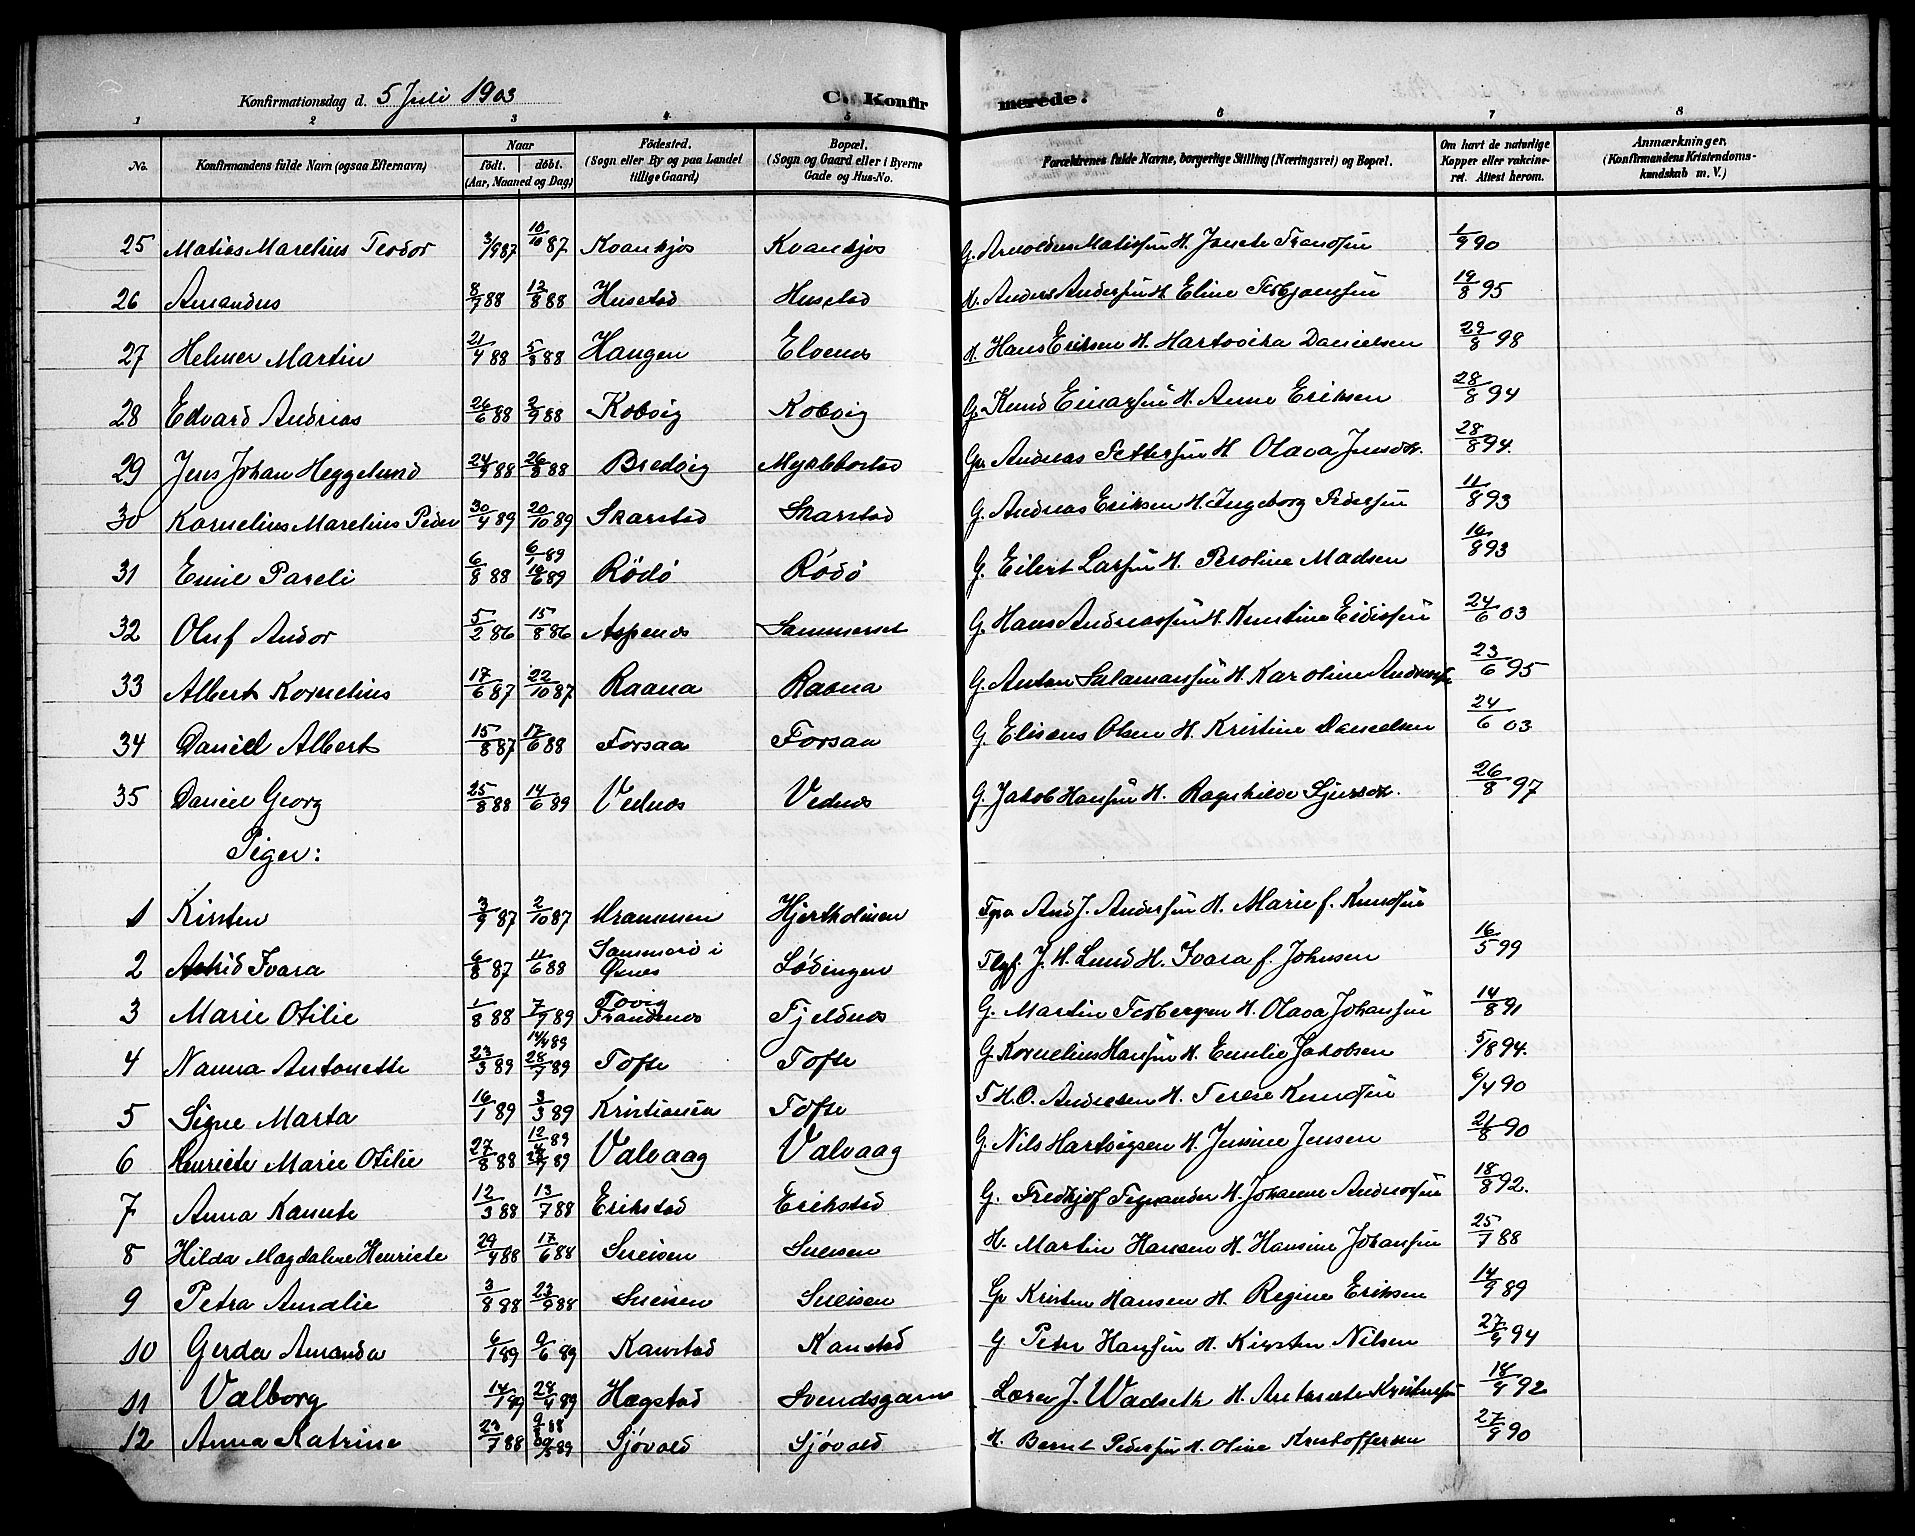 Konfirmationsdag d. 5 Juli 1903 C. Konfirmerede.
1 2 3 4 5 6 7 8
No. Konfirmandens fulde Navn (ogsaa Efternavn) Naar født. døbt. (Aar, Maaned og Dag) Fødested. (Sogn eller By og paa Landet tillige Gaard) Bopæl. (Sogn og Gaard eller i Byerne Gade og Hus-No. Forældrenes fulde Navne, borgerlige Stilling (Næringsvei) og Bopæl. Om havt de naturlige Kopper eller vakcineret. Attest herom. Anmærkninger, (Konfirmandens Kristendomskundskab m. V.)
25 Matias Marelius Teodor 3/9 87 10/10 87 Kvansjos Kvansjos G. Arnoldus Matissen H. Jansete Fransen 1/9 90
26 Amandus 8/7 88 12/8 88 Husetad Husetad H. Anders Andersen H. Eline Torbjønsen 19/8 95
27 Helmer Martin 21/4 88 5/8 88 Haugen Elvenes H. Hans Eriksen H. Hartvika Danielsen 29/8 98
28 Edvard Andreas 26/6 88 2/9 88 Kobvig Kobvig G. Knud Einarsen H. Anne Eriksen 28/8 94
29 Jens Johan Heggelund 24/4 88 26/8 88 Bredvig Myklebostad G. Andreas Pettersen H Olava Jensdtr. 28/8 94.
30 Kornelius Marelius Peder 30/4 89 20/10 89 Skarstad Skarstad G. Andreas Eriksen H. Ingeborg Pedersen 11/8 93
31 Emil Pareli 6/8 88 6/1 89 10/6 89 Rödö Rödö G. Eilert Larsen H. Peroline Madsen 16/8 93
32 Oluf Andor 5/2 86 15/8 86 Aspenes Sammerset G. Hans Andreassen H. Kirstine Eidissen 24/6 03
33 Albert Kornelius 17/6 87 22/10 87 Raana Raana G. Anton Salamonsen H. Karoline Andreassen 23/6 95
34 Daniel Albert 15/8 87 17/6 88 Forsaa Forsaa G. Eliseus Olsen H. Kristine Danielsen 24/6 03
35 Daniel Georg 25/8 88 14/6 89 Vednes Vednes G. Jakob Hansen H. Ragnhilde Sjursdtr. 26/8 97
Piger:
1 Kirsten 3/9 87 2/10 87 Kramnen Hjertholmen And J. Andersen H. Marie f. Knudsen
2 Astrid Ivara 6/8 87 11/6 88 Sammerö i Öxnes Lödingen Tlgf. J. H. Lund H. Ivara f. Johnsen 16/5 99
3 Marie Otilie 1/8 88 7/7 89 Tovig Trandenes Fjeldnes G. Martin Torbergsen H. Olava Johansen 14/8 91
4 Nanna Antonette 23/3 89 14/4 89 28/7 89 Tofte Tofte G. Kornelius Hansen H. Emelie Jakobsen 5/8 94.
5 Signe Marta 16/1 89 3/3 89 Kristiania Tofte T. H. O. Andresen H. Terese Knudsen 6/4 90
6 Henriete Marie Otilie 27/8 88 12/4 89 28/7 89 Valvaag Valvaag G. Nils Hartvigsen H. Jensine Jensen 21/8 90
7 Anna Kanute 12/3 88 13/7 88 Erikstad Erikstad G. Fredhjof Tegnander H. Johanne Andersen 18/8 92.
8 Hilda Magdalene Henriete 29/4 88 17/6 88 Sneisen Sneisen H. Martin Hansen H. Hansine Johansen 25/7 88
9 Petra Amalie 3/8 88 23/9 88 Sneisen Sneisen G. Kristen Hansen H. Regine Eriksen 14/9 89
10 Gerda Amanda 6/1 89 9/6 89 Kanstad Kanstad G Peter Hansen H. Kirsten Nilsen 27/9 94
11 Valborg 14/1 89 28/4 89 Hægstad Svendsgam Lærer J. Wadseth H. Antonete Kristensen 18/9 92
12 Anna Katrine 23/7 88 9/8 88 30/5 89 Sjövold Sjövold H. Bernt Pedersen H. Oline Kristoffersen 27/9 90